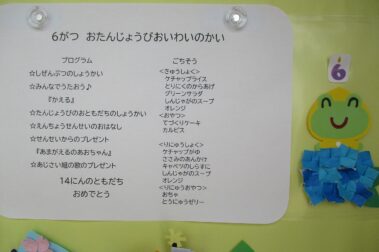 6がつ おたんじょうびおいわいのかい
プログラム
☆しぜんぶつのしょうかい
☆みんなでうたおう♪
『かえる』
☆たんじょうびのおともだちのしょうかい
☆えんちょうせんせいのおはなし
☆せんせいからのプレゼント
『あまがえるのあおちゃん』
☆あじさい組の歌のプレゼント
14にんのともだち
おめでとう
ごちそう
<きゅうしょく>
ケチャップライス
とりにくのからあげ
グリーンサラダ
しんじゃがのスープ
オレンジ
<おやつ>
てづくりケーキ
カルピス
<りにゅうしょく>
ケチャップがゆ
ささみのあんかけ
キャベツのしらすに
しんじゃがのスープ
オレンジ
<りにゅうおやつ>
おちゃ
とうにゅうゼリー
6